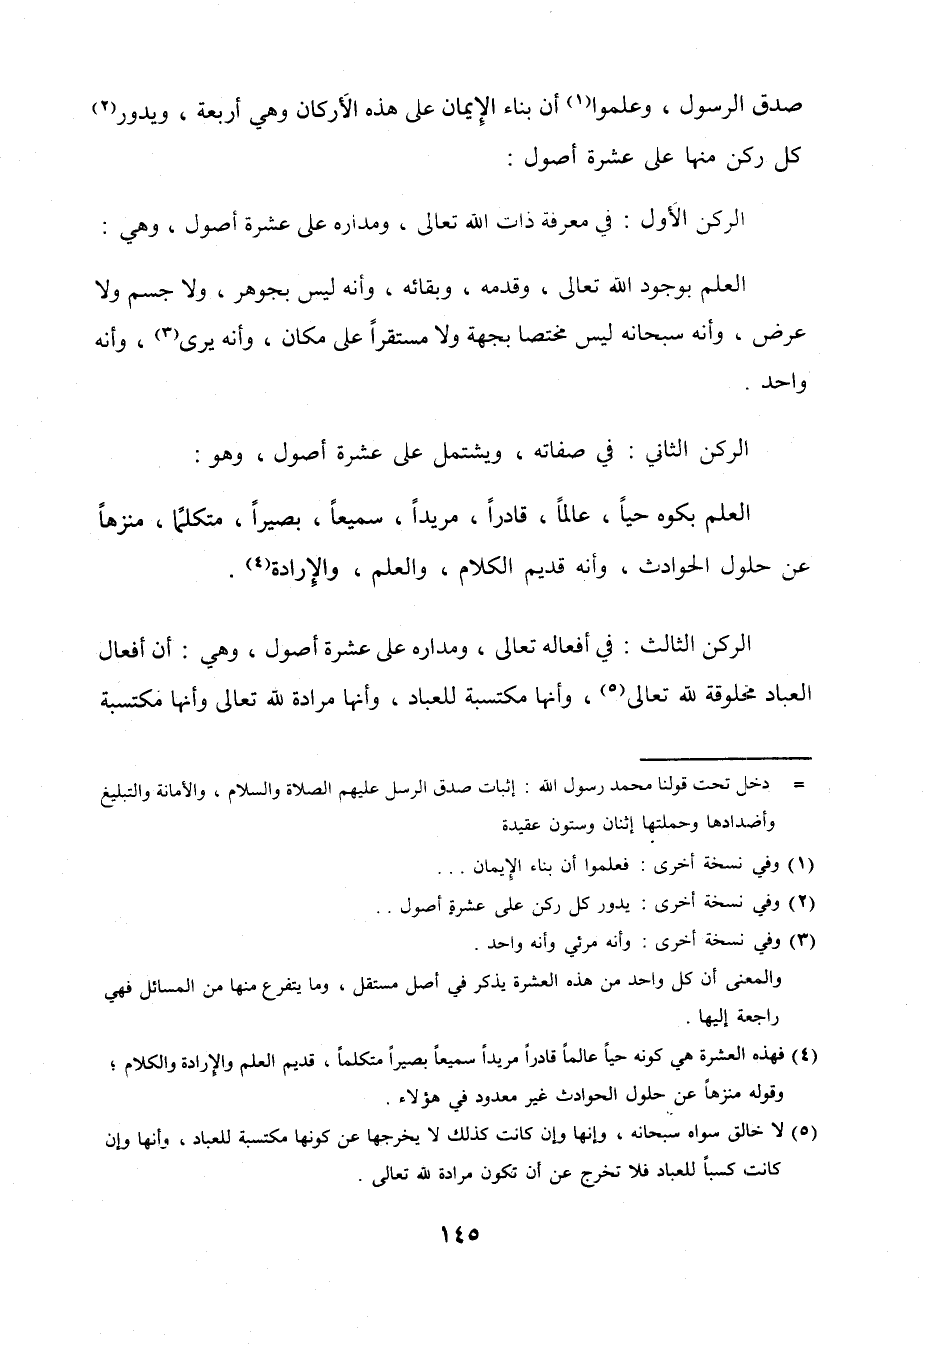 صدق الرسول ، وعلموا(١) أن بناء الإيمان على هذه الأركان وهي أربعة ، ويدور(٢)
كل ركن منها على عشرة أصول :
الركن الأول : في معرفة ذات الله تعالى ، ومداره على عشرة أصول ، وهي :
العلم بوجود الله تعالى ، وقدمه ، وبقائه ، وأنه ليس بجوهر ، ولا جسم ولا
عرض ، وأنه سبحانه ليس مختصا بجهة ولا مستقراً على مكان ، وأنه يرى(٣) ، وأنه
واحد .
الركن الثاني : في صفاته ، ويشتمل على عشرة أصول ، وهو :
العلم بكوه حياً ، عالماً ، قادراً ، مريداً ، سميعاً ، بصيراً ، متكلماً ، منزهاً
عن حلول الحوادث ، وأنه قديم الكلام ، والعلم ، والإرادة(٤) .
الركن الثالث : في أفعاله تعالى ، ومداره على عشرة أصول ، وهي : أن أفعال
العباد مخلوقة لله تعالى(٥) ، وأنها مكتسبة للعباد ، وأنها مرادة لله تعالى وأنها مكتسبة
= دخل تحت قولنا محمد رسول الله : إثبات صدق الرسل عليهم الصلاة والسلام ، والأمانة والتبليغ
وأضدادها وحملتها إثنان وستون عقيدة
(١) وفي نسخة أخرى : فعلموا أن بناء الإيمان . . .
(٢) وفي نسخة أخرى : يدور كل ركن على عشرة أصول . .
(٣) وفي نسخة أخرى : وأنه مرئي وأنه واحد .
والمعنى أن كل واحد من هذه العشرة يذكر في أصل مستقل ، وما يتفرع منها من المسائل فهي
راجعة إليها .
(٤) فهذه العشرة هي كونه حياً عالماً قادراً مريداً سميعاً بصيراً متكلماً ، قديم العلم والإرادة والكلام ؛
وقوله منزهاً عن حلول الحوادث غير معدود في هؤلاء .
(٥) لا خالق سواه سبحانه ، وإنها وإن كانت كذلك لا يخرجها عن كونها مكتسبة للعباد ، وأنها وإن
كانت كسباً للعباد فلا تخرج عن أن تكون مرادة لله تعالى .
١٤٥